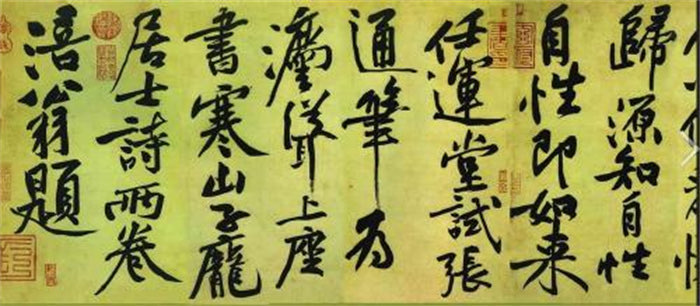 歸源知自性
自性即如来
任運堂試張
通筆為
灋聳上座
書寒山子龐
居士詩兩卷
涪翁題